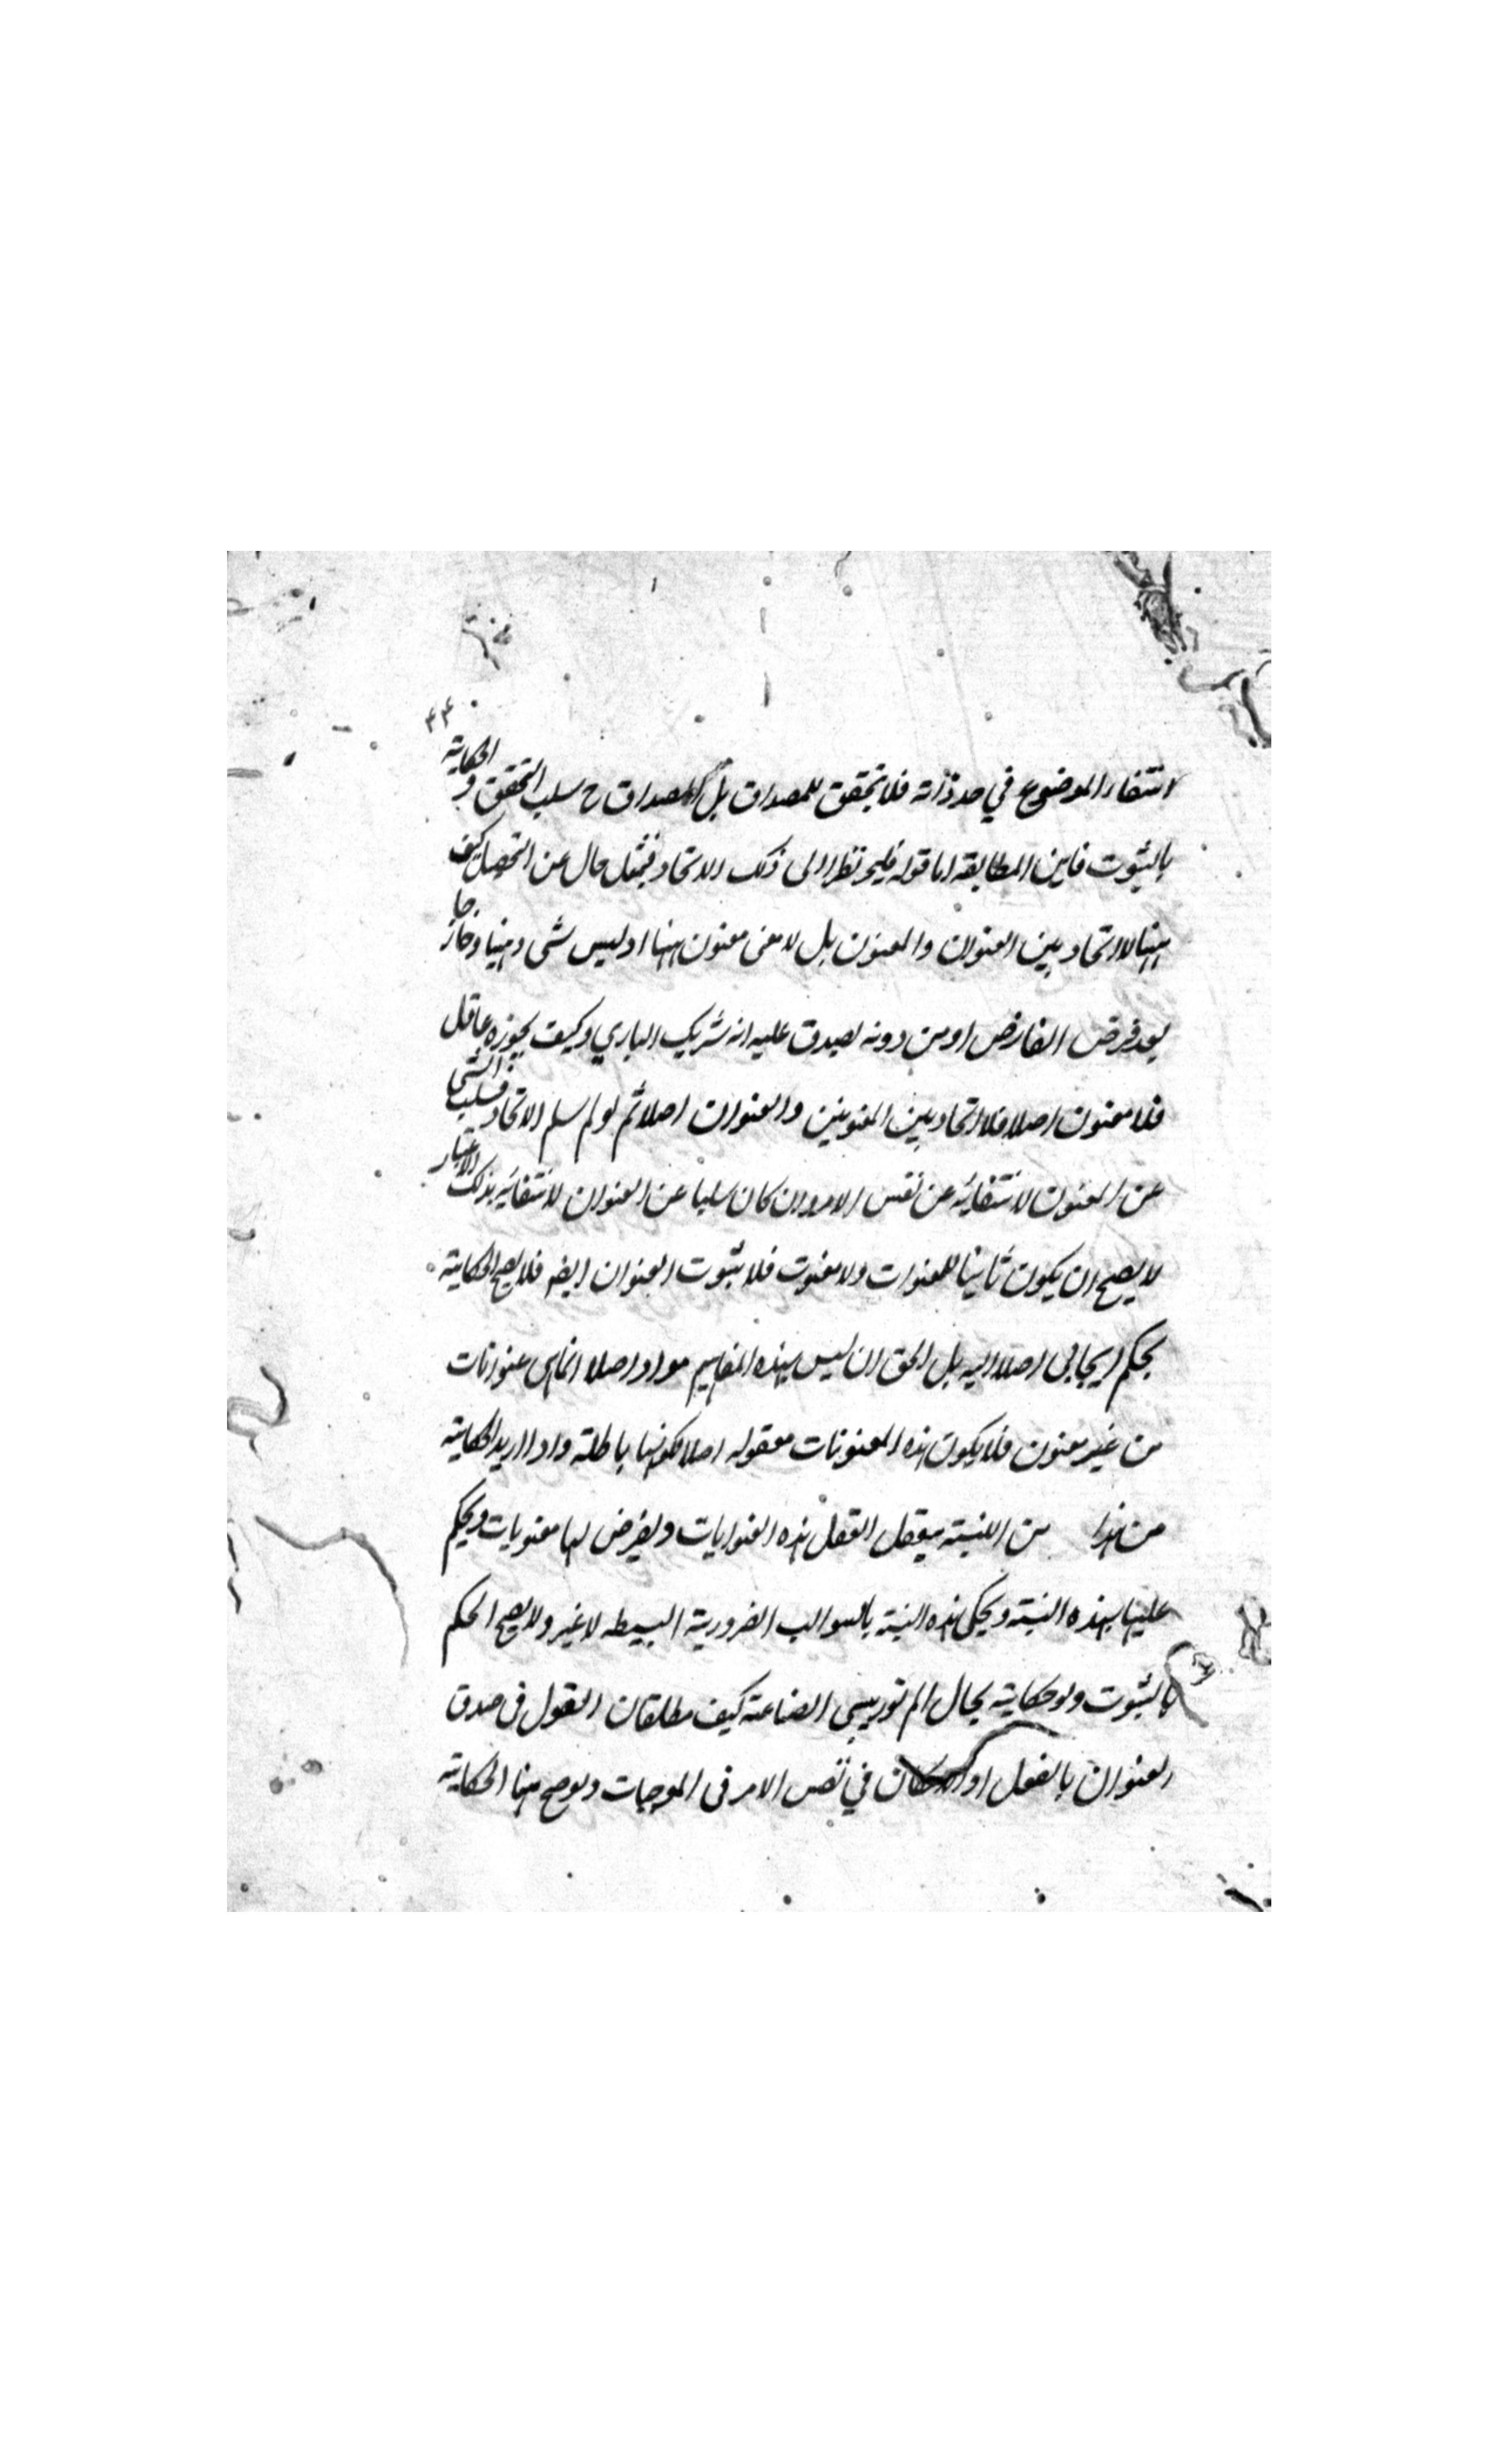 ٤٤
انتفاء الموضوع في حد ذاته فلا تحقق للمصداق بل المصداق ح سلب التحقق و الحكاية
بالثبوت فاين المطابقة اما قوله فليحر نظرا الى ذلك الاتحاد فبمثل حال عن التحصيل كيف
ههنا لا اتحاد بين العنوان والمعنون بل لا معنى معنون ههنا اذ ليس شى ذهنيا و خارجا
بعد فرض الفارض او من دونه يصدق عليه انه شريك الباري وكيف يجوزه عاقل
فلا معنون اصلا فلا اتحاد بين المعنونين والعنوان اصلا ثم لو لم سلم الاتحاد فسلب الشى
عن المعنون لانتفائه عن نفس الامر وان كان سلبا عن العنوان لانتفائه بذلك الاعتبار
لا يصح ان يكون ثابتا للعنوان ولا معنون فلا ثبوت العنوان ايض فلا يصح الحكاية
بحكم ايجابى اصلا اليه بل الحق ان ليس لهذه المفاهيم مواد اصلا انما هى عنوانات
من غير معنون فلا يكون هذه المعنونات معقوله اصلا لكونها باطلة واذا اريد الحكاية
من هذا من النسبة يعقل العقل هذه العنوانات ويفرض لها معنونات ويحكم
عليها بهذه النسبة ويحكى هذه النسبة بالسوالب الضرورية البسيطه لا غير ولا يصح الحكم
بالثبوت ولو حكاية بحال الم تورىسى الصناعة كيف مطلقان العقول فى صدق
العنوان بالفعل او الامكان في نفس الامر فى الموجبات ولوصح ههنا الحكاية